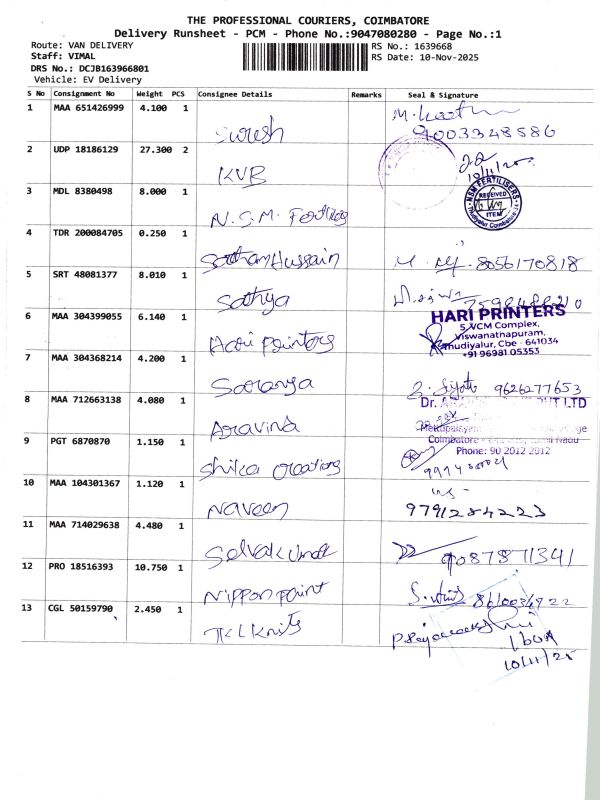 THE PROFESSIONAL COURIERS, COIMBATORE
Delivery Runsheet - PCM - Phone No.:9047080280 - Page No.:1
Route: VAN DELIVERY
RS No.: 1639668
Staff: VIMAL
RS Date: 10-Nov-2025
DRS No.: DCJB163966801
Vehicle: EV Delivery
S No Consignment No Weight PCS Consignee Details Remarks Seal & Signature
1 MAA 651426999 4.100 1
Suresh 9003348586
2 UDP 18186129 27.300 2
KVB 10/11/25
3 MDL 8380498 8.000 1
NSM FERTILISERS
RECEIVED
ITEM
Thudiyalur Coimbatore
N.S.M.
4 TDR 200084705 0.250 1
Hussain 8056170818
5 SRT 48081377 8.010 1
Sathya
6 MAA 304399055 6.140 1
HARI PRINTERS
5,VCM Complex,
Viswanathapuram,
Thudiyalur, Cbe - 641034
+91 96981 05353
Hari printers
7 MAA 304368214 4.200 1
Saranya 9626277653
8 MAA 712663138 4.080 1
Dr. PVT LTD
Aravind
Coimbatore
9 PGT 6870870 1.150 1
Phone: 90 2012 2012
Shika creations
10 MAA 104301367 1.120 1
Naveen 9791284223
11 MAA 714029638 4.480 1
Selvakumar 9087871341
12 PRO 18516393 10.750 1
Nippon paint
13 CGL 50159790 2.450 1
TKL Knits
10/11/25